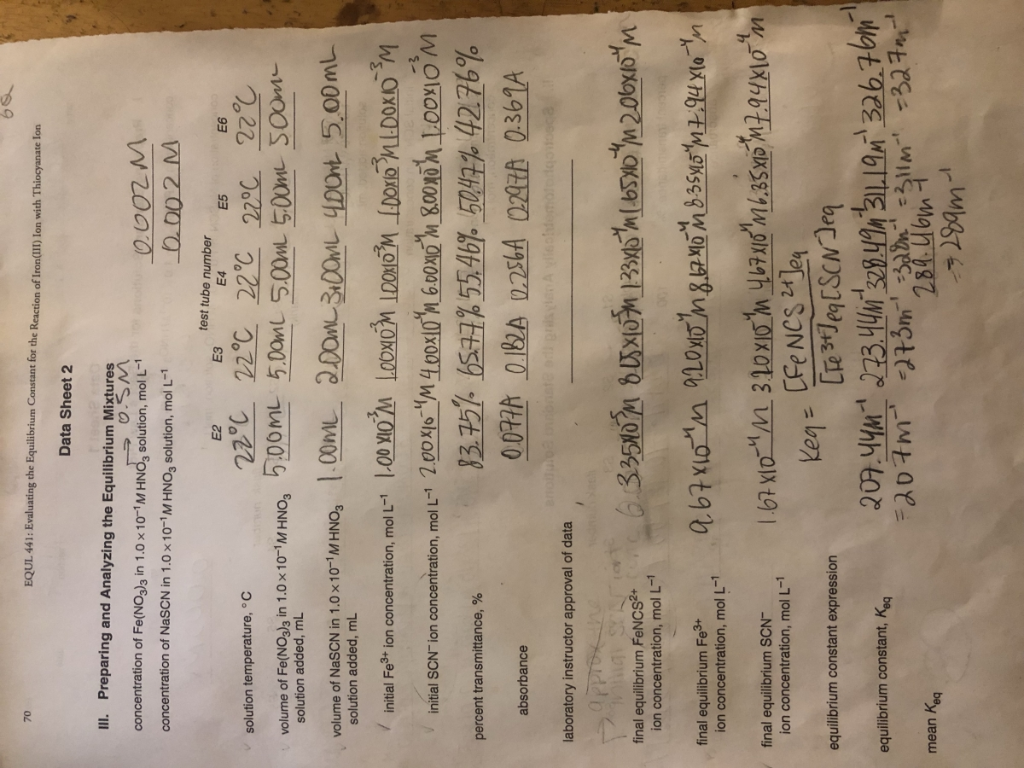 6Q
70 EQUL 441: Evaluating the Equilibrium Constant for the Reaction of Iron(III) Ion with Thiocyanate Ion
Data Sheet 2
III. Preparing and Analyzing the Equilibrium Mixtures
→ 0.5M
concentration of Fe(NO3)3 in 1.0 × 10−1M HNO3 solution, mol L−1 0.002 M
concentration of NaSCN in 1.0 × 10−1M HNO3 solution, mol L−1 0.002 M
test tube number
E2 E3 E4 E5 E6
solution temperature, °C 22°C 22°C 22°C 22°C 22°C
volume of Fe(NO3)3 in 1.0 × 10−1M HNO3 5.00mL 5.00mL 5.00mL 5.00mL 5.00mL
solution added, mL
volume of NaSCN in 1.0 × 10−1M HNO3 1.00mL 2.00mL 3.00mL 4.00mL 5.00mL
solution added, mL
initial Fe3+ ion concentration, mol L−1 1.00×10-3M 1.00×10-3M 1.00×10-3M 1.00×10-3M 1.00×10-3M
initial SCN− ion concentration, mol L−1 2.00×10-4M 4.00×10-4M 6.00×10-4M 8.00×10-4M 1.00×10-3M
percent transmittance, % 83.75% 65.77% 55.46% 50.47% 42.76%
absorbance 0.077A 0.182A 0.256A 0.297A 0.369A
laboratory instructor approval of data
final equilibrium FeNCS2+ 3.35×10-5M 8.05×10-5M 1.33×10-4M 1.65×10-4M 2.06×10-4M
ion concentration, mol L−1
final equilibrium Fe3+ 9.67×10-4M 9.20×10-4M 8.67×10-4M 8.35×10-4M 7.94×10-4M
ion concentration, mol L−1
final equilibrium SCN− 1.67×10-4M 3.20×10-4M 4.67×10-4M 6.35×10-4M 7.94×10-4M
ion concentration, mol L−1
equilibrium constant expression Keq = [FeNCS2+]eq
[Fe3+]eq[SCN-]eq
equilibrium constant, Keq 207.44M-1 273.44M-1 328.49M-1 311.19M-1 326.76M-1
=207M-1 =273M-1 =328M-1 =311M-1 =327M-1
mean Keq 289.46M-1
=> 289M-1